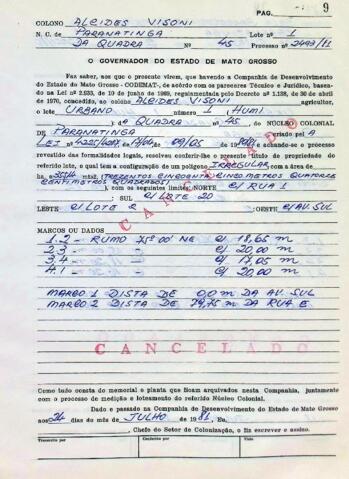 PAG. 9
COLONO ALCIDES VISONI
N. C. de PARANATINGA Lote nº 1
DA QUADRA Nº 45 Processo nº
O GOVERNADOR DO ESTADO DE MATO GROSSO
Faz saber, aos que o presente virem, que havendo a Companhia de Desenvolvimento
do Estado de Mato Grosso - CODEMAT-, de acordo com os pareceres Técnico e Jurídico, basea-
do na Lei nº 2.933, de 10 de junho de 1969, regulamentada pelo Decreto nº 1.138, de 30 de abril
de 1970, concedido, ao colono ALCIDES VISONI agricultor,
o lote URBANO número 1 (HUM)
da QUADRA nº 45, do NÚCLEO COLONIAL
DE PARANATINGA criado pela
LEI 09/05 de e achando-se o processo
revestido das formalidades legais, resolvei conferir-lhe o presente título de propriedade do
referido lote, o qual tem a configuração de um polígono IRREGULAR com a área de
(TREZENTOS CINCOENTA CINCO METROS QUATORZE
CENTIMETROS QUADRADOS), com os seguintes limites: NORTE c/ RUA 1
: SUL c/ LOTE 20
LESTE c/ LOTE 2 : OESTE c/ AV. SUL
CANCELADO
MARCOS OU DADOS
1.2 - RUMO 75º00' NE c/ 18,65 m
2.3 - c/ 20,00 m
3.4 - c/ 17,05 m
4.1 - c/ 20,00 m
MARCO 1 DISTA DE 0,0 m DA AV. SUL
MARCO 2 DISTA DE m DA RUA E
CANCELADO
Como tudo consta do memorial e planta que ficam arquivados nesta Companhia, juntamente
com o processo de medição e loteamento do referido Núcleo Colonial.
Dado e passado na Companhia de Desenvolvimento do Estado de Mato Grosso
aos 24 dias do mês de JULHO de 1981, Eu,
, Chefe do Setor de Colonização, o fiz escrever e assino.
Transcrito por Conferido por Visto